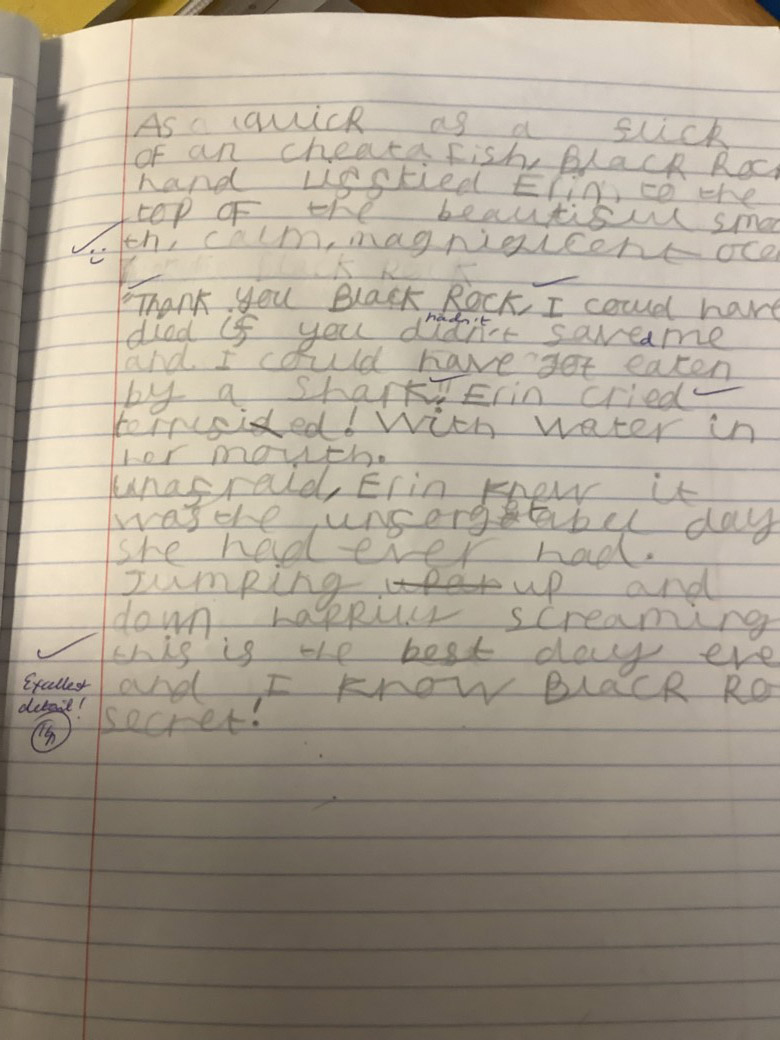 As quick as a flick
of an cheata fish, Black Rock
hand lifstied Erin, to the
top of the beautiful smoo
th, calm, magnificent oce
"Thank you Black Rock, I could have
died if you didn't saved me
hadn't
and I could have got eaten
by a shark!" Erin cried
terrified! With water in
her mouth.
Unafraid, Erin knew it
was the unforgetabel day
she had ever had.
Jumping up and
down happily screaming
this is the best day eve
and I know Black Ro
Excellent
detail!
secret!